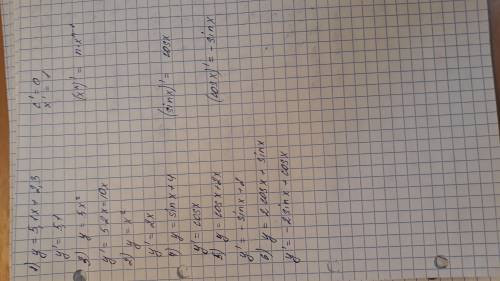 1) y = 5,1x + 2,3
y' = 5,1
2) y = 5x²
y' = 5·2x = 10x
2) y = x²
y' = 2x
4) y = sinx + 4
y' = cosx
5) y = cosx + 2x
y' = - sinx + 2
6) y = 2cosx + sinx
y' = -2sinx + cosx
c' = 0
x' = 1
(xⁿ)' = n·xⁿ⁻¹
(sinx)' = cosx
(cosx)' = -sinx